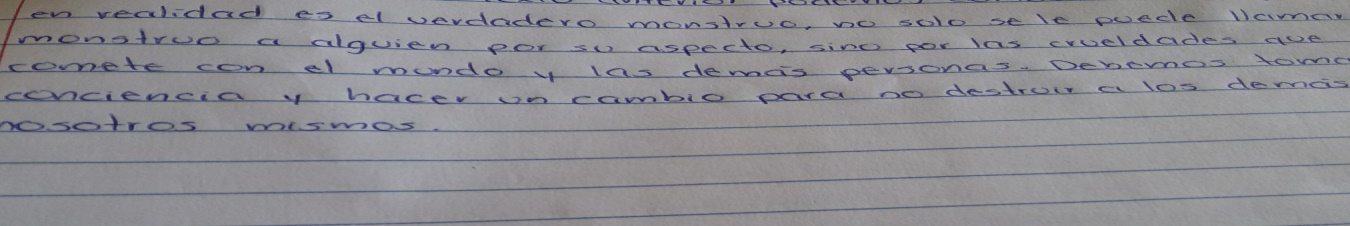 en realidad es el verdadero monstruo, no solo se le puede llamar
monstruo a alguien por su aspecto, sino por las crueldades que
comete con el mundo y las demás personas. Debemos toma
conciencia y hacer un cambio para no destruir a los demás
nosotros mismos.